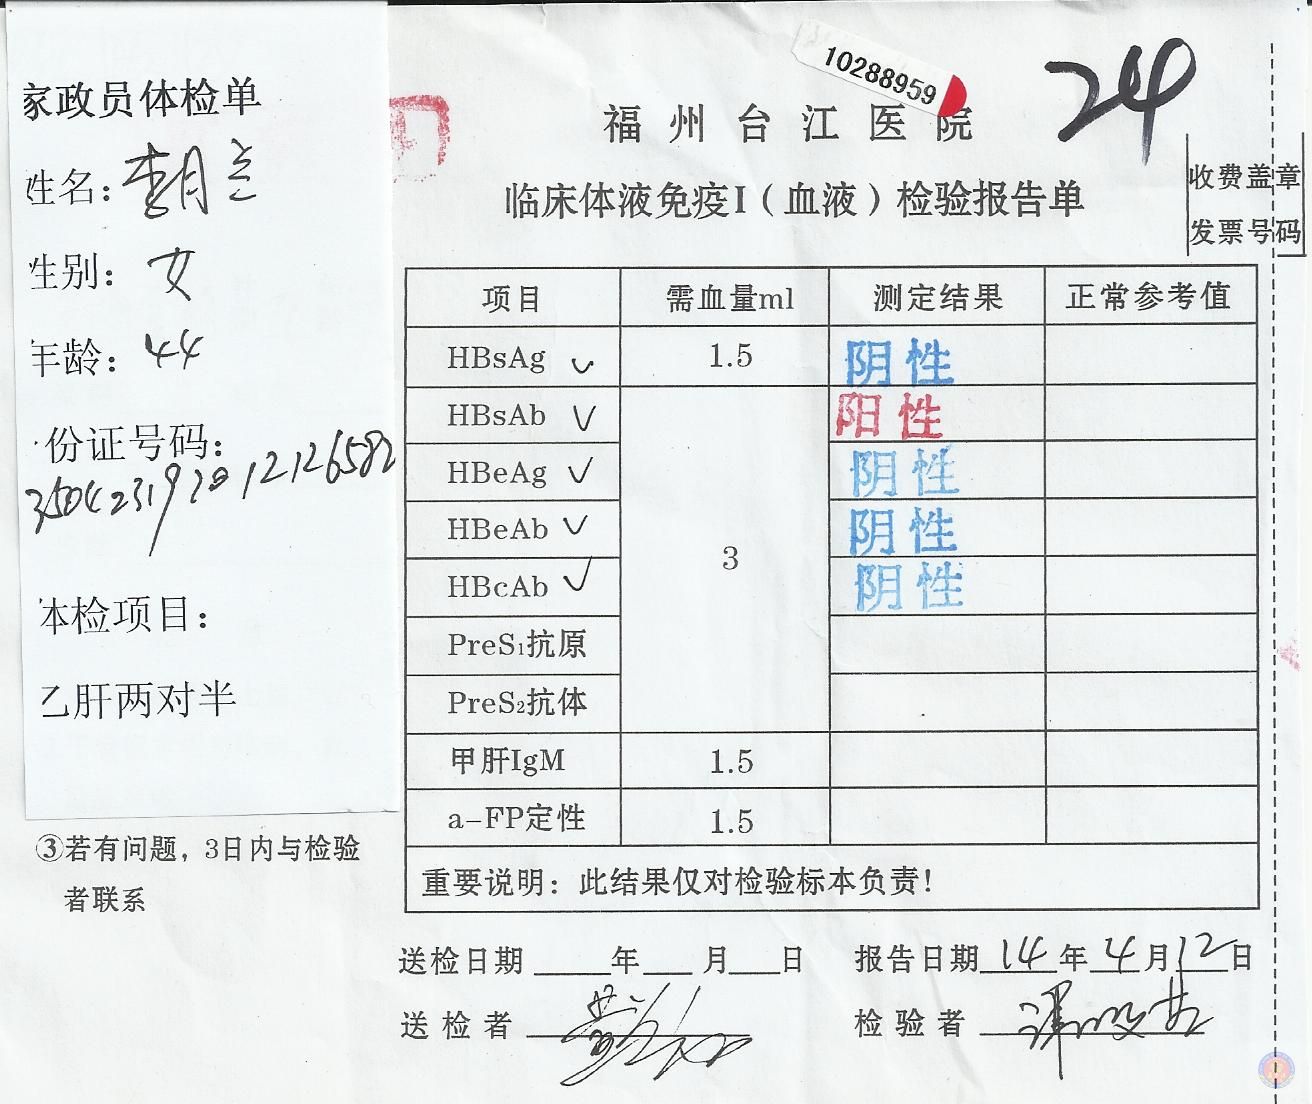 10288959
24
福州台江医院
临床体液免疫I（血液）检验报告单
收费盖章
发票号码
家政员体检单
姓名：李月兰
性别：女
年龄：44
份证号码：
350423197012126582
体检项目：
乙肝两对半
③若有问题，3日内与检验
者联系
项目 需血量ml 测定结果 正常参考值
HBsAg 1.5 阴性
HBsAb 阳性
HBeAg 阴性
HBeAb 3 阴性
HBcAb 阴性
PreS₁抗原
PreS₂抗体
甲肝IgM 1.5
a-FP定性 1.5
重要说明：此结果仅对检验标本负责！
送检日期 年 月 日 报告日期 14 年 4 月 12 日
送检者 检验者